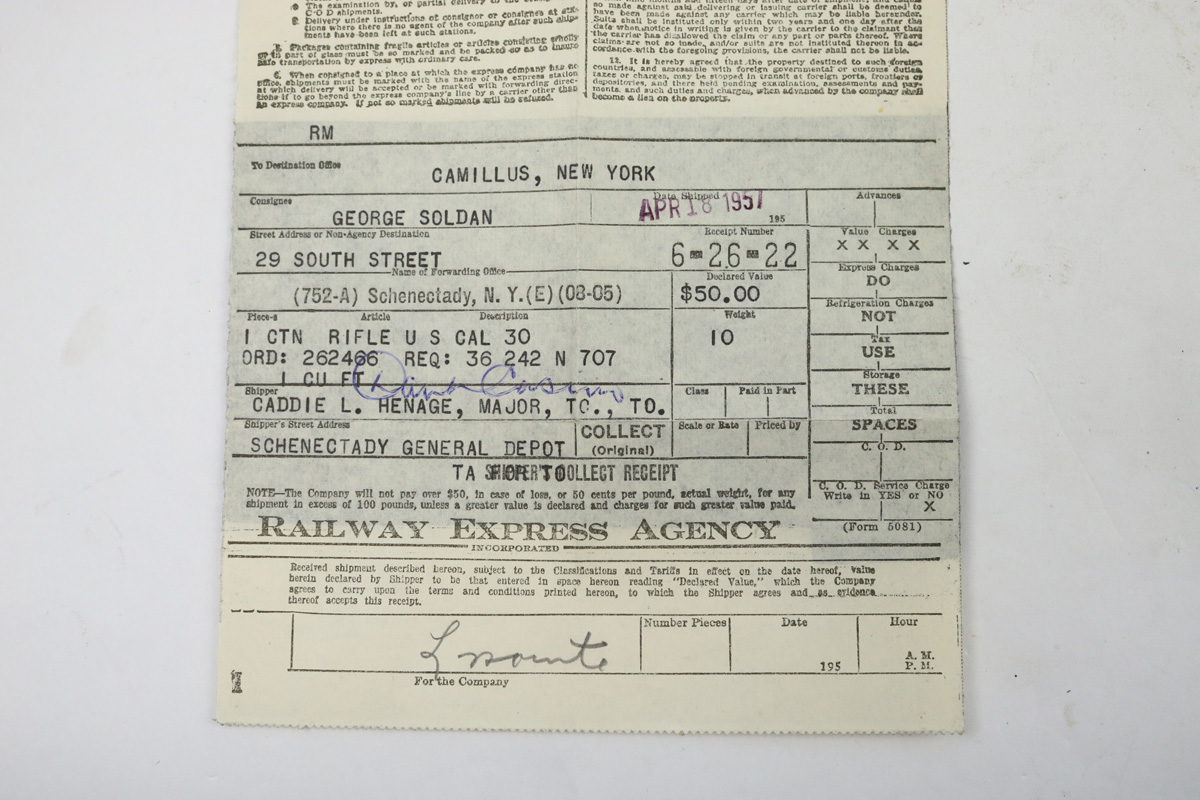 The examination by, or partial delivery to the
C-O-D shipments.
Delivery under instructions of consignor or consignee at sta-
tions where there is no agent of the company after such ship-
ments have been left at such stations.
Packages containing fragile articles or articles consisting wholly
or in part of glass must be so marked and be packed so as to insure
safe transportation by express with ordinary care.
When consigned to a place at which the express company has no
office, shipments must be marked with the name of the express station
at which delivery will be accepted or be marked with forwarding direc-
tions if to go beyond the express company's line by a carrier other than
an express company. If not so marked shipments will be refused.
so made against said delivering or issuing carrier shall be deemed to
have been made against any carrier which may be liable hereunder.
Suits shall be instituted only within two years and one day after the
date when notice in writing is given by the carrier to the claimant that
the carrier has disallowed the claim or any part or parts thereof. Where
claims are not so made, and/or suits are not instituted thereon in ac-
cordance with the foregoing provisions, the carrier shall not be liable.
12. It is hereby agreed that the property destined to such foreign
countries, and assessable with foreign governmental or customs duties,
taxes or charges, may be stopped in transit at foreign ports, frontiers or
depositories, and there held pending examination, assessments and pay-
ments, and such duties and charges, when advanced by the company shall
become a lien on the property.
RM
To Destination Office
CAMILLUS, NEW YORK
Consignee
GEORGE SOLDAN
Date Shipped
APR 18 1957
195
Advances
Street Address or Non-Agency Destination
29 SOUTH STREET
Receipt Number
6-26-22
Value Charges
X X X X
Name of Forwarding Office
(752-A) Schenectady, N. Y.(E)(08-05)
Declared Value
$50.00
Express Charges
DO
Refrigeration Charges
NOT
Piece-s Article Description
Weight
1 CTN RIFLE U S CAL 30
10
Tax
USE
ORD: 262466 REQ: 36 242 N 707
1 CU FT
Storage
THESE
Shipper
CADDIE L. HENAGE, MAJOR, TC., TO.
Class
Paid in Part
Total
SPACES
Shipper's Street Address
SCHENECTADY GENERAL DEPOT
COLLECT
(Original)
Scale or Rate
Priced by
C. O. D.
TA SHIPPER'S COLLECT RECEIPT
C. O. D. Service Charge
Write in YES or NO
X
NOTE—The Company will not pay over $50, in case of loss, or 50 cents per pound, actual weight, for any
shipment in excess of 100 pounds, unless a greater value is declared and charges for such greater value paid.
RAILWAY EXPRESS AGENCY
INCORPORATED
(Form 5081)
Received shipment described hereon, subject to the Classifications and Tariffs in effect on the date hereof, value
herein declared by Shipper to be that entered in space hereon reading "Declared Value," which the Company
agrees to carry upon the terms and conditions printed hereon, to which the Shipper agrees and as evidence
thereof accepts this receipt.
Number Pieces
Date
195
Hour
A. M.
P. M.
For the Company
1